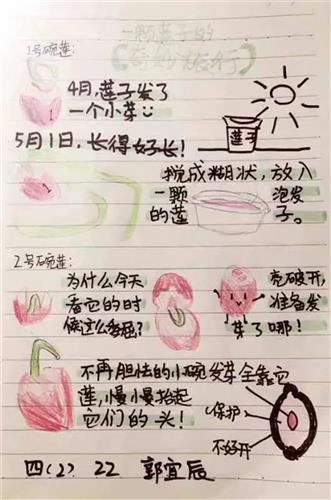 一颗莲子的
奇妙旅行
1号碗莲:
4月,莲子发了
一个小芽
莲子
5月1日,长得好长!
1
1
搅成糊状,放入
一颗泡发
的莲子。
2号碗莲:
为什么今天
看它的时
候这么多泡?
壳破开,
准备发
芽了哪!
不再胆怯的小碗
莲,慢小慢抬起
它们的头!
发芽全靠它
保护
不好开
四(2) 22 郭宜辰